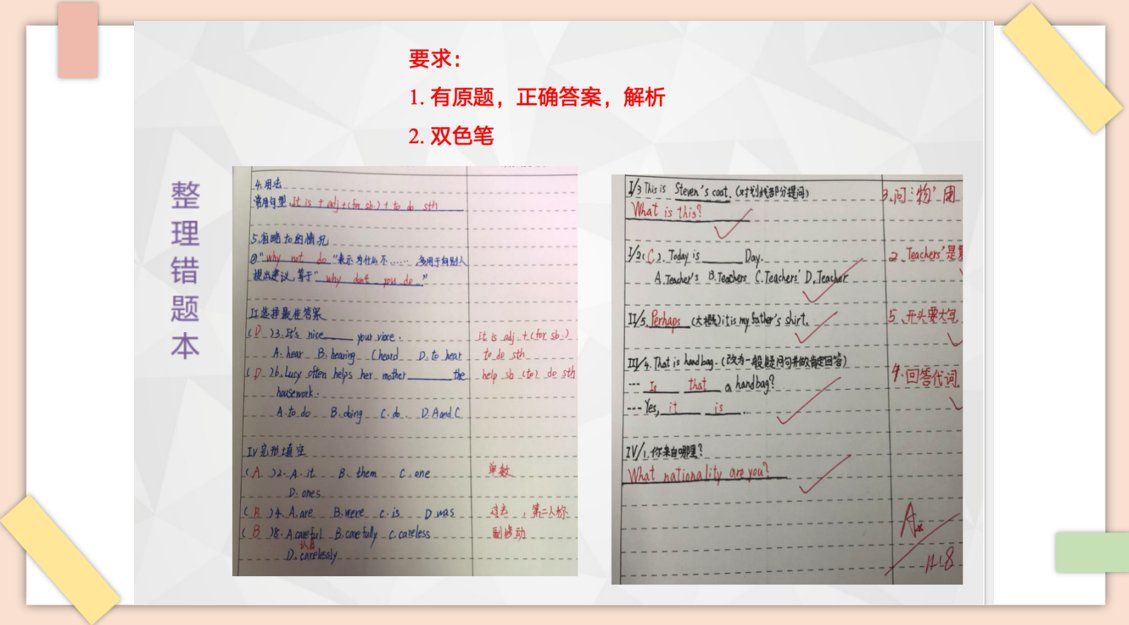 要求：
1. 有原题，正确答案，解析
2. 双色笔
整理错题本
4.用法
常用句型 It is + adj + (for sb.) + to do sth
5.省略to的情况
①"why not do "表示为什么不…… 多用于向别人
提出建议,等于"why don't you do."
II.选择最佳答案
(D)3.It's nice____ your voice. It is adj + (for sb.)
A. hear B. hearing C heard D. to hear to do sth
(D)26.Lucy often helps her mother____ the help sb (to) do sth
housework.
A. to do B. doing C. do D. A and C
IV完形填空
(A)2. A. it B. them C. one 单数
D. ones
(B)4. A. are B. were C. is D was 过去，第二人称
(B)8. A careful B. carefully C. careless 副修动
认真
D. carelessly
I/3 This is Steven's coat. (对划线部分提问) 3.问"物"用
What is this?
I/2(C). Today is ____ Day. 2. Teachers'是
A. Teacher's B. Teachers C. Teachers' D. Teacher
II/5. Perhaps (大概) it is my father's shirt. 5. 开头要大写
III/4. That is handbag. (改为一般疑问句并做肯定回答) 4.回答代词
--- Is that a handbag?
--- Yes, it is.
IV/1. 你来自哪里?
What nationality are you?
A
11.8